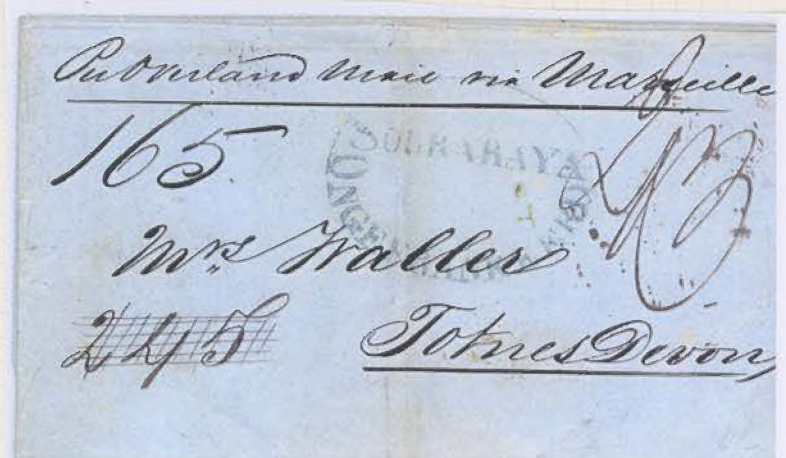 Per Overland Mail via Marseille
165.
SOURABAYA
ONGEFRANKEERD
Mrs Waller
245
Totnes Devon,